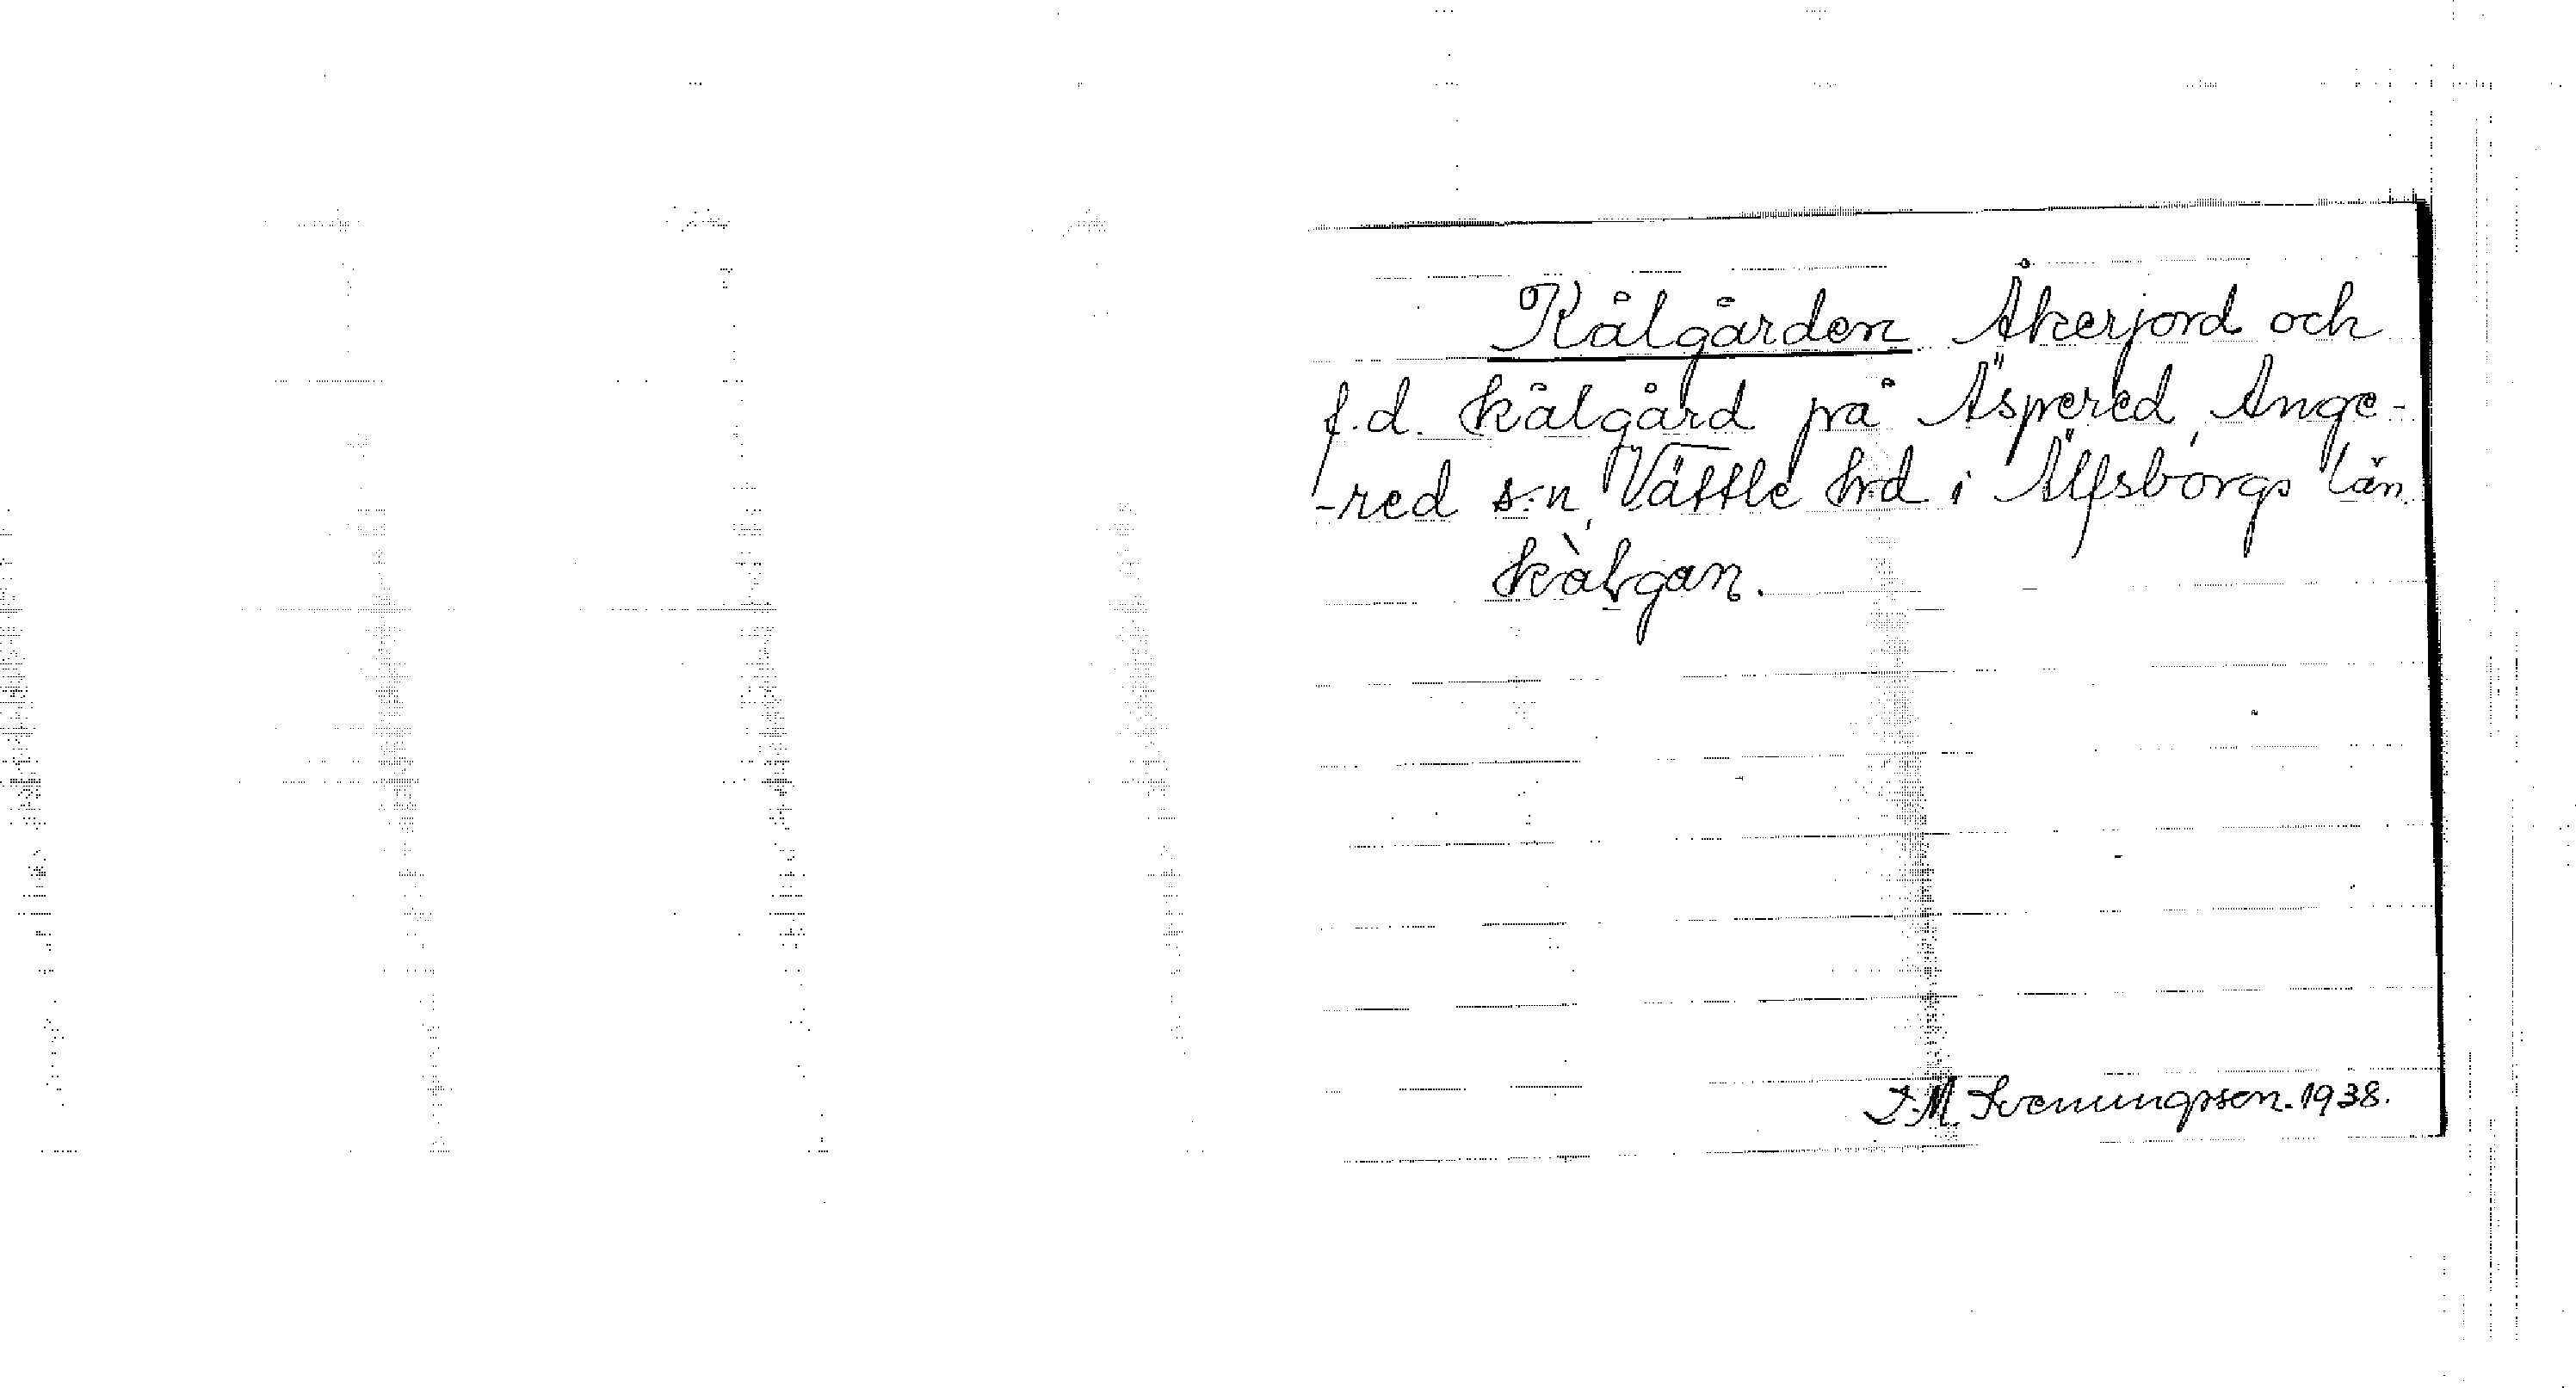 Kålgården Åkerjord och
f.d. kålgård på Äspered, Ange-
-red s:n, Vättle hrd i Älfsborgs län
kàlgan.
J.M. Svenungsson. 1938.